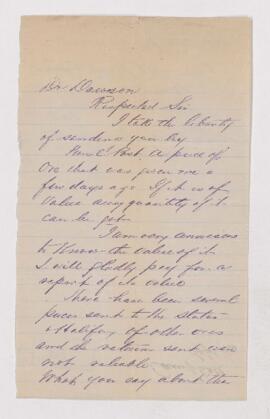 Dr Dawson
Respected Sir
I take the liberty
of sending you by
Post a piece of
Ore that was given me a
few days ago If it is of
Value any quantity of it
can be got
I am very anxious
to Know the value of it
I will gladly pay for a
report of its value
There have been several
pieces sent to the States
& Halifax of other ores
and the returns sent were
not reliable
What you say about the